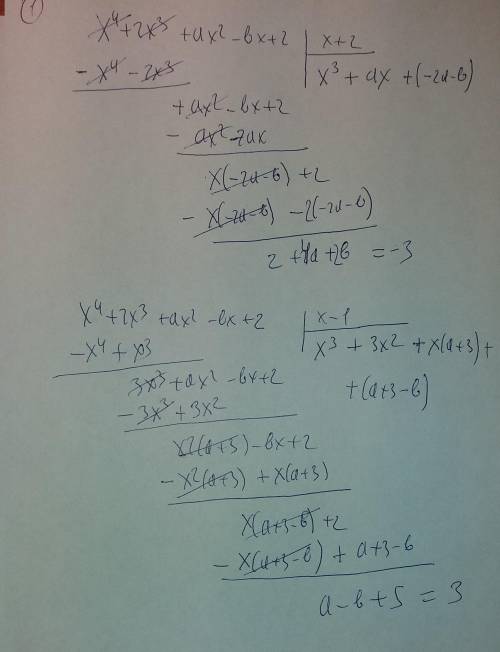 ①
x⁴+2x³ +ax² -вx+2 | x+2
-x⁴ -2x³ x³ + ax +(-2a-в)
+ax² -вx+2
- ax² -2ax
x(-2a-в) +2
- x(-2a-в) -2(-2a-в)
2 +4a +2в = -3
x⁴+2x³ +ax² -вx+2 | x-1
-x⁴ + x³ x³ + 3x² +x(a+3)+
3x³ +ax² -вx+2 +(a+3-в)
-3x³ +3x²
x²(a+3) -вx+2
-x²(a+3) +x(a+3)
x(a+3-в) +2
- x(a+3-в) + a+3-в
a-в+5 = 3